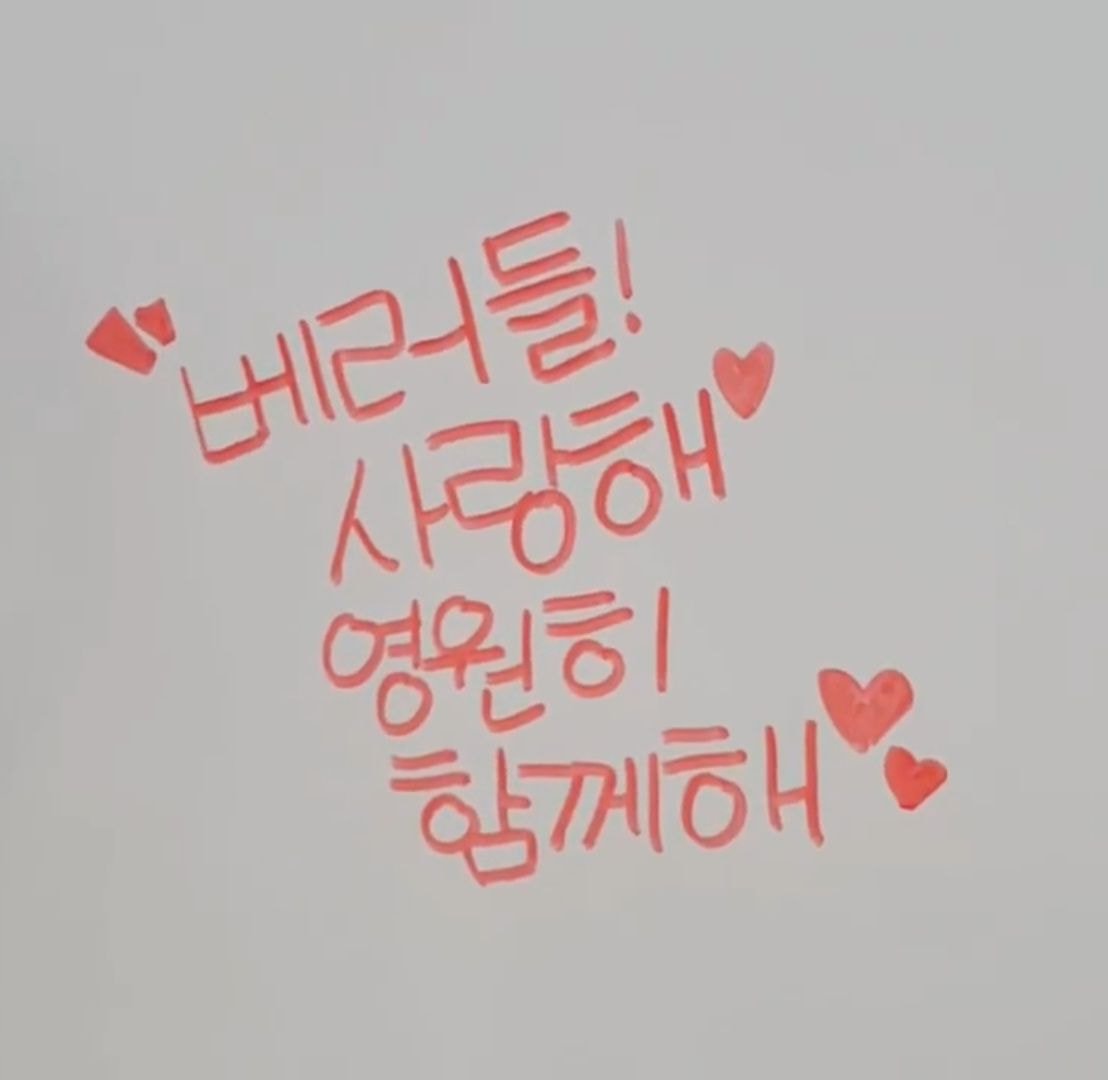 "베러들!
사랑해♥
영원히
함께해♥♥